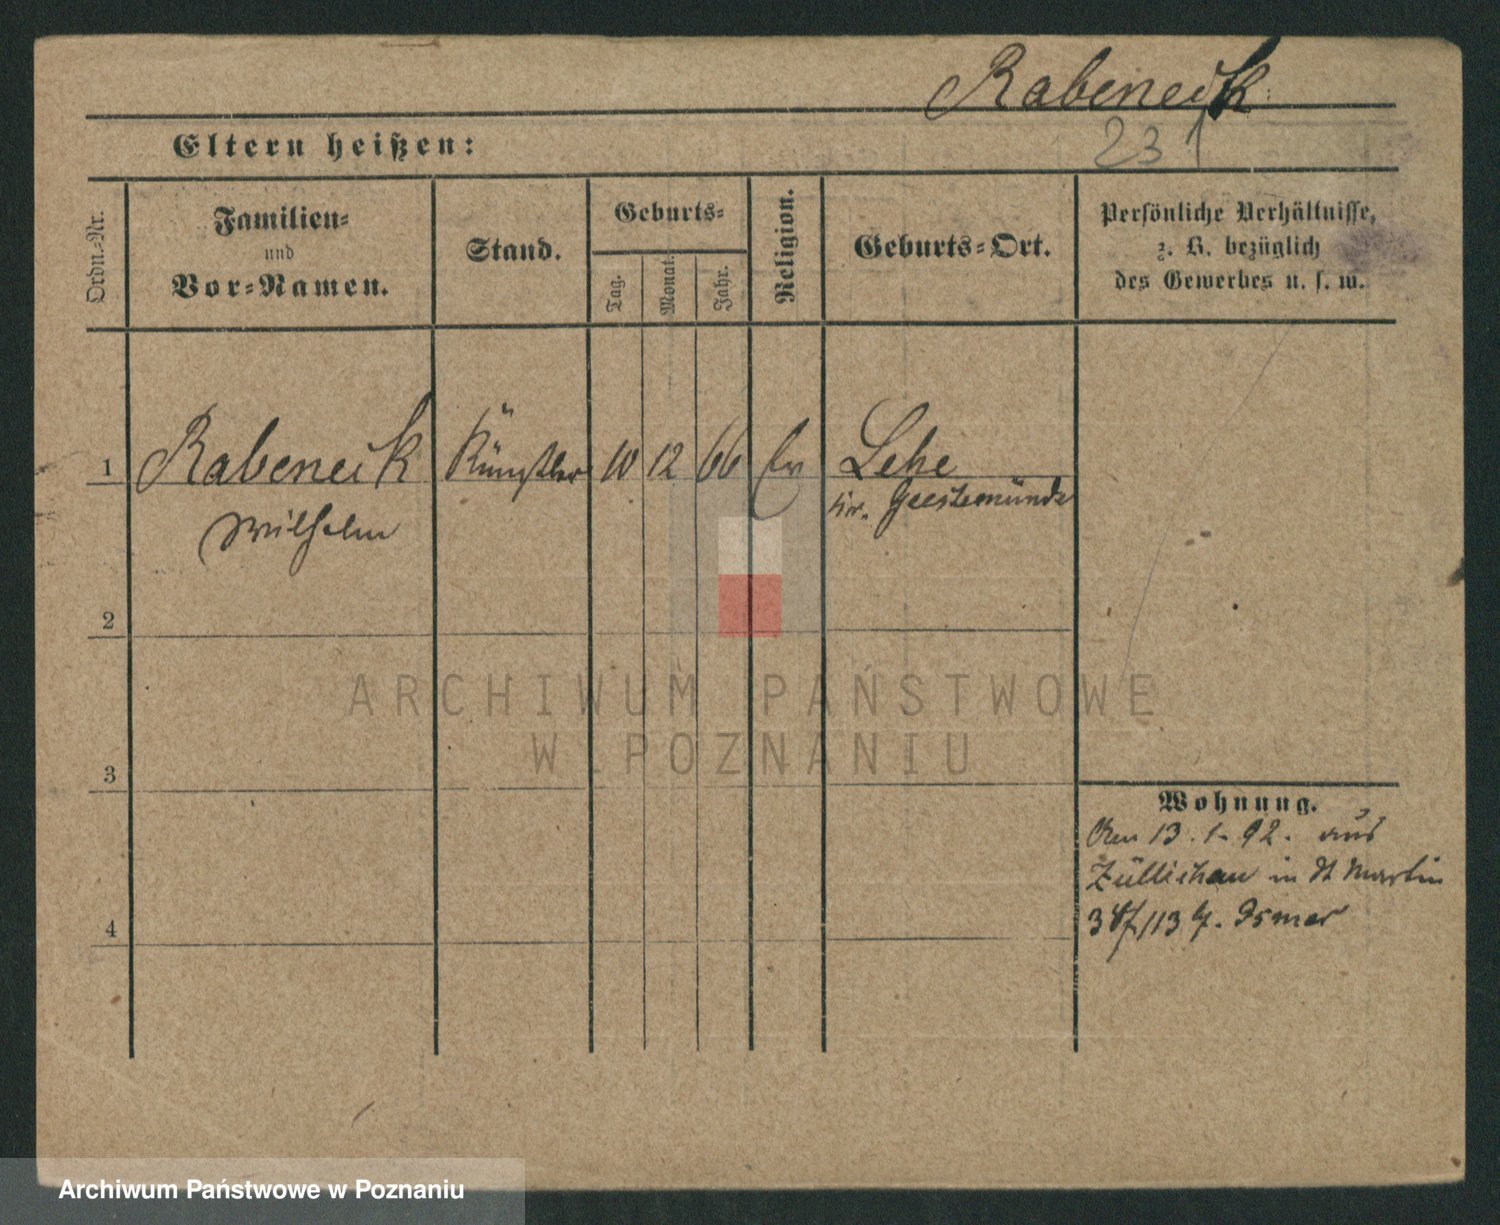 Rabeneick
231
Eltern heißen:
Ordn.-Nr.
Familien-
und
Vor-Namen.
Stand.
Geburts-
Tag.
Monat.
Jahr.
Religion.
Geburts-Ort.
Persönliche Verhältnisse,
z. B. bezüglich
des Gewerbes u. s. w.
1 Rabeneick Künstler 10 12 66 Ev Lehe
Wilhelm
Kr. Geestemünde
2
3
4
Wohnung.
Den 13.1.92. aus
Züllichau in St Martin
ARCHIWUM PAŃSTWOWE
W POZNANIU
Archiwum Państwowe w Poznaniu